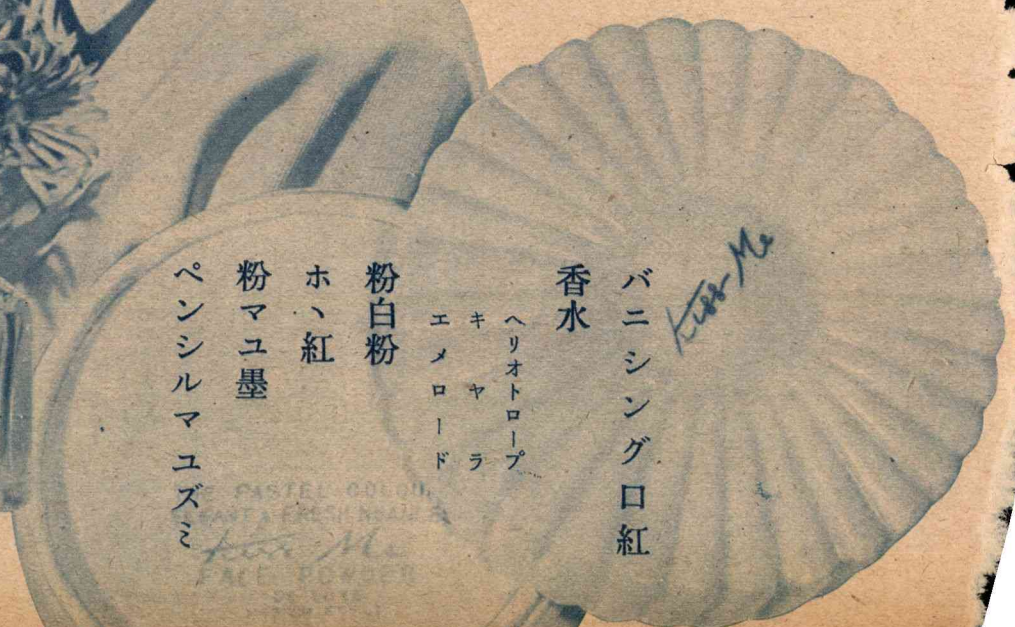 Kiss Me
バニシング口紅
香水
ヘリオトロープ
キャラ
エメロード
粉白粉
ホヽ紅
粉マユ墨
ペンシルマユズミ
PASTEL COLOU
Kiss Me
FACE POWDER